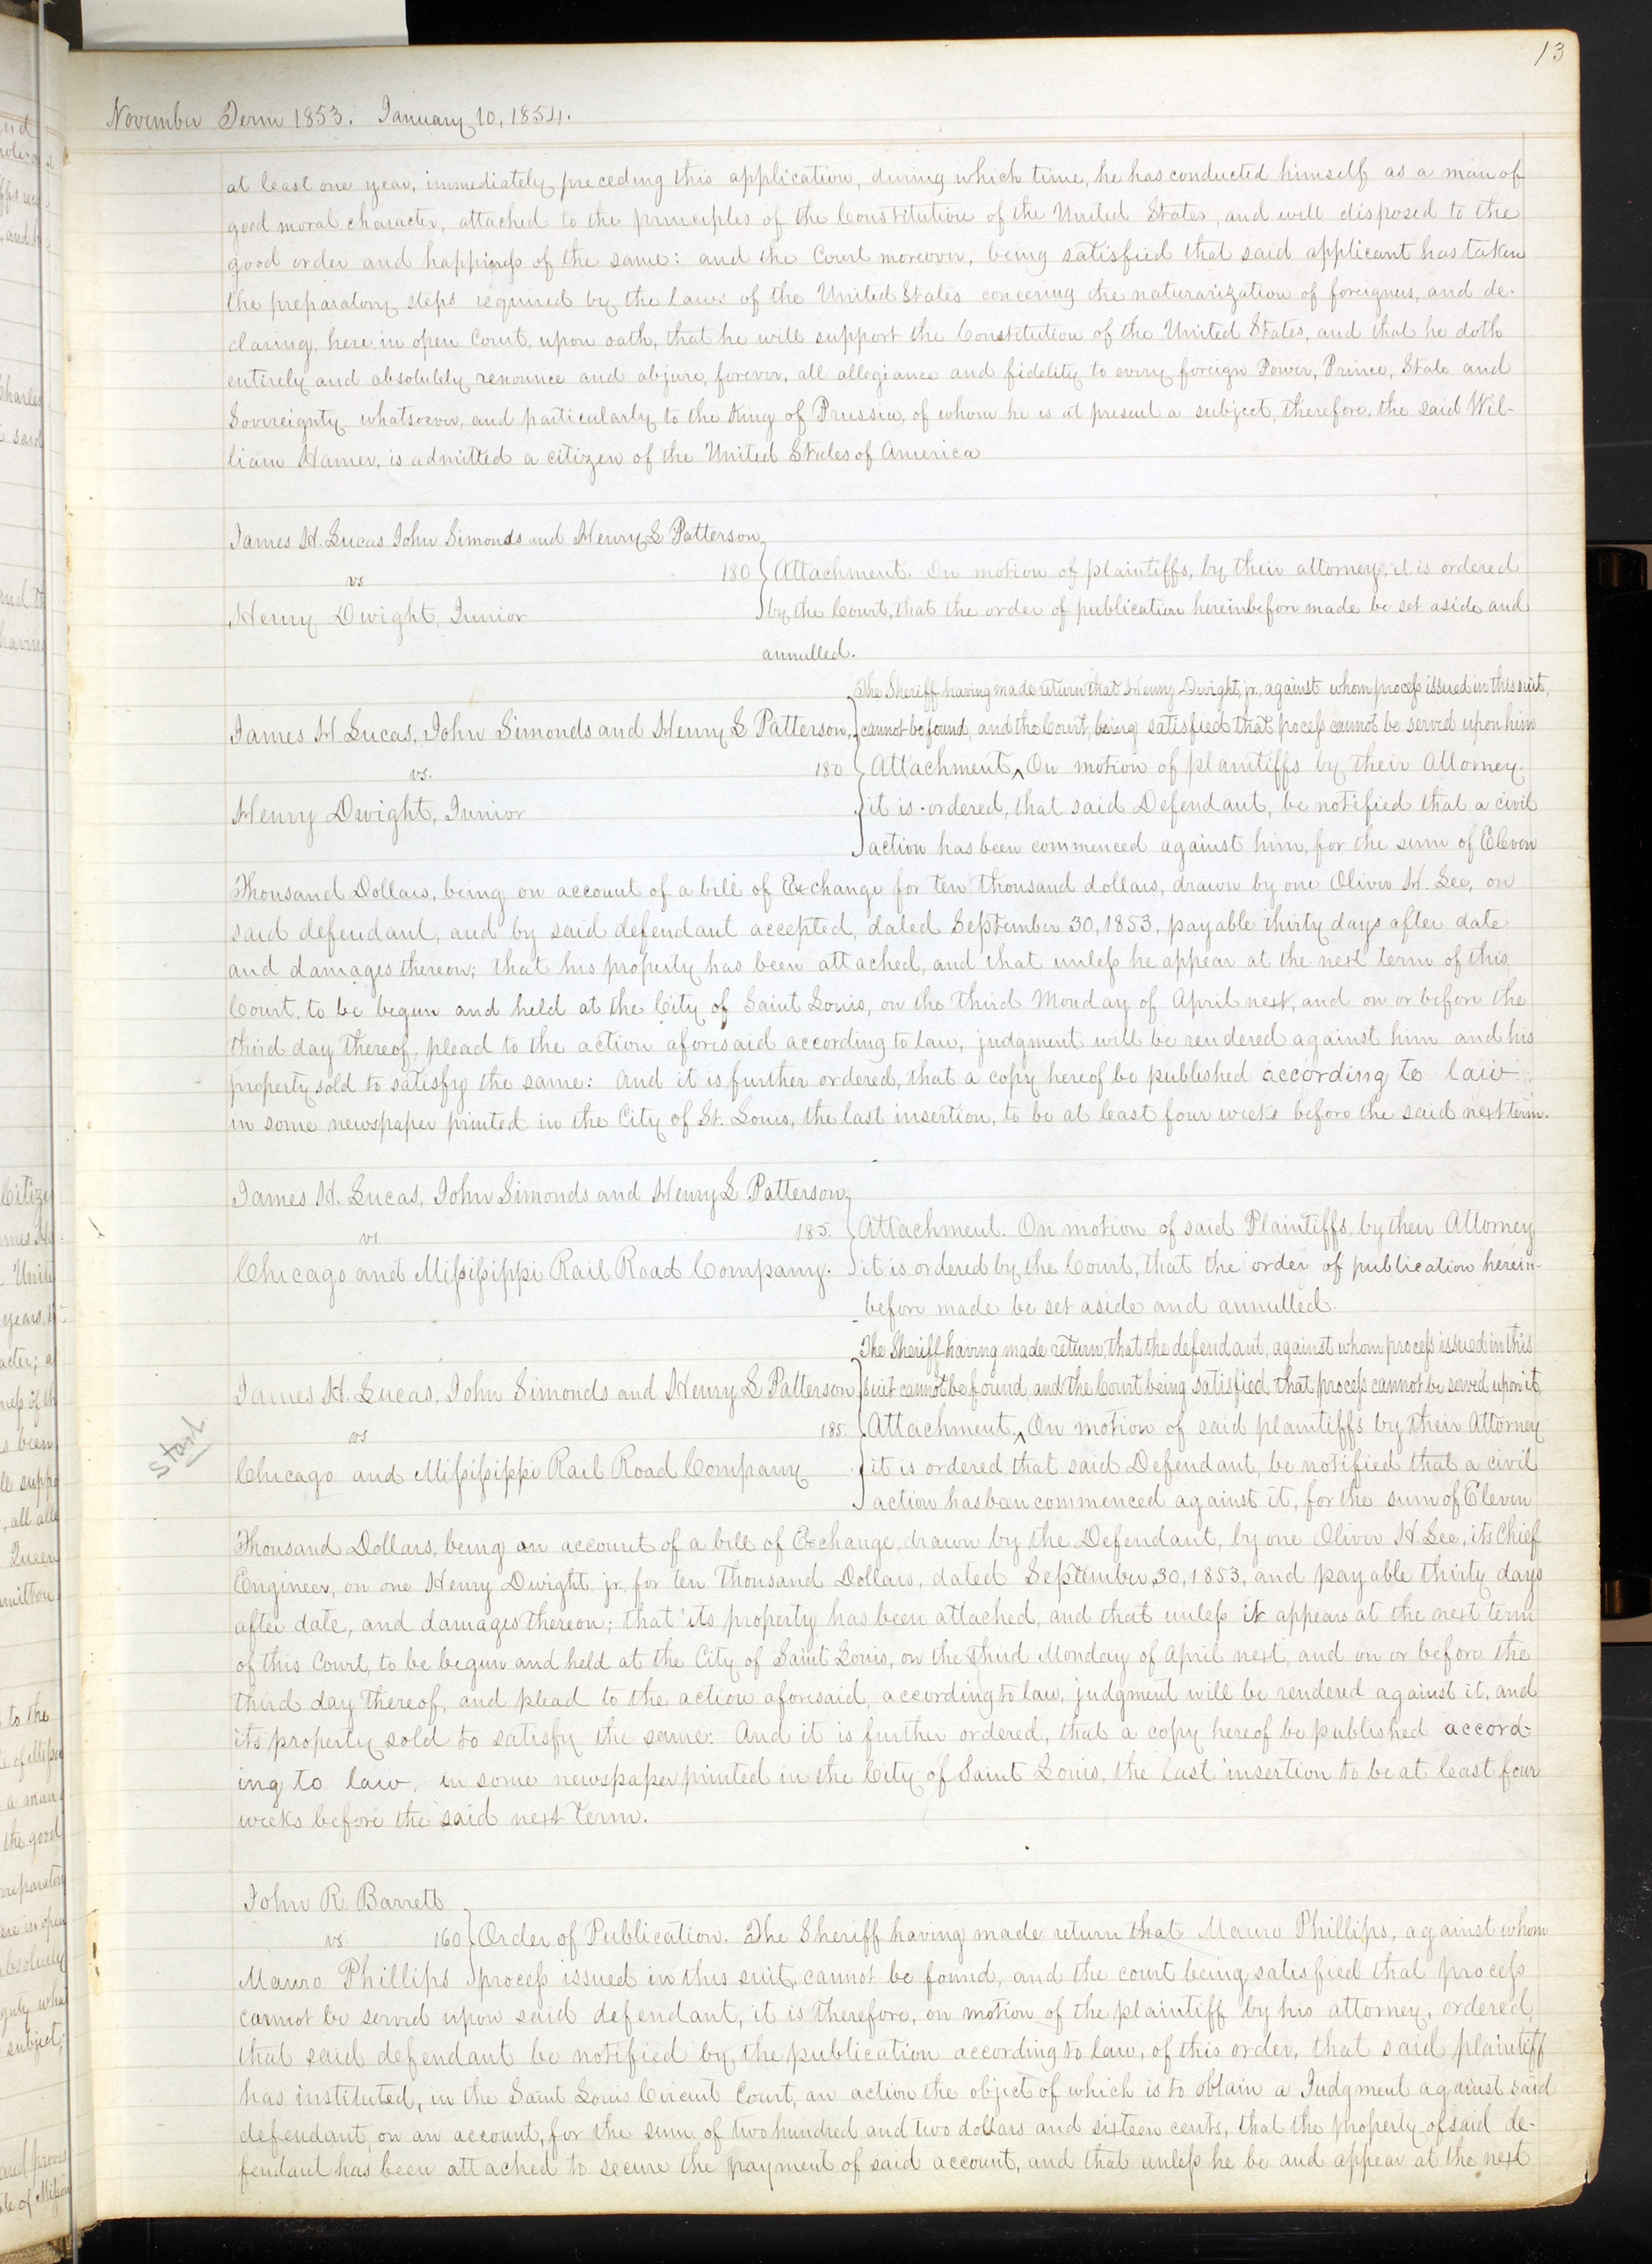 13
November Term 1853. January 10, 1854.
at least one year, immediately preceding this application, during which time, he has conducted himself as a man of
good moral character, attached to the principles of the Constitution of the United States, and well disposed to the
good order and happiness of the same: and the Court moreover, being satisfied that said applicant has taken
the preparatory steps required by the laws of the United States concering the naturarization of foreigners, and de-
claring, here in open Court, upon oath, that he will support the Constitution of the United States, and that he doth
entirely and absolutely renounce and abjure, forever, all allegiance and fidelity to every foreign Power, Prince, State and
Sovereignty whatsoever, and particularly to the King of Prussia, of whom he is at present a subject, therefore, the said Wil-
liam Hamer, is admitted a citizen of the United States of America
James H. Lucas, John Simonds and Henry L Patterson,
vs 180 Attachment. On motion of plaintiffs, by their attorney, it is ordered
Henry Dwight, Junior by the Court, that the order of publication hereinbefore made be set aside and
annulled.
The Sheriff having made return that Henry Dwight, jr., against whom process issued in this suit,
James H Lucas, John Simonds and Henry L Patterson, cannot be found, and the Court, being satisfied that process cannot be served upon him
vs. 180 Attachment, On motion of plaintiffs by their Attorney.
Henry Dwight, Junior it is ordered, that said Defendant, be notified that a civil
action has been commenced against him, for the sum of Eleven
Thousand Dollars, being on account of a bill of Exchange for ten thousand dollars, drawn by one Oliver H. Lee, on
said defendant, and by said defendant accepted, dated September 30, 1853, payable thirty days after date
and damages thereon; that his property has been attached, and that unless he appear at the next term of this
Court, to be begun and held at the City of Saint Louis, on the third Monday of April next, and on or before the
third day thereof, plead to the action aforesaid according to law, judgment will be rendered against him and his
property sold to satisfy the same: And it is further ordered, that a copy hereof be published according to law
in some newspaper printed in the City of St. Louis, the last insertion, to be at least four weeks before the said next term.
James H. Lucas, John Simonds and Henry L Patterson,
vs 185. Attachment. On motion of said Plaintiffs by their Attorney,
Chicago and Mississippi Rail Road Company. it is ordered by the Court, that the order of publication herein-
before made be set aside and annulled.
The Sheriff having made return, that the defendant, against whom process issued in this
James H. Lucas, John Simonds and Henry L Patterson, suit cannot be found, and the Court being satisfied that process cannot be served upon it,
vs 185. Attachment, On motion of said plaintiffs by their Attorney
Start
Chicago and Mississippi Rail Road Company it is ordered that said Defendant, be notified that a civil
action has been commenced against it, for the sum of Eleven
Thousand Dollars, being on account of a bill of Exchange, drawn by the Defendant, by one Oliver H. Lee, its Chief
Engineer, on one Henry Dwight jr. for ten Thousand Dollars, dated September 30, 1853, and payable thirty days
after date, and damages thereon; that its property has been attached, and that unless it appear at the next term
of this Court, to be begun and held at the City of Saint Louis, on the third Monday of April next, and on or before the
third day thereof, and plead to the action aforesaid, according to law, judgment will be rendered against it, and
its property sold to satisfy the same: And it is further ordered, that a copy hereof be published accord-
ing to law, in some newspaper printed in the City of Saint Louis, the last insertion to be at least four
weeks before the said next Term.
John R. Barrett
vs. 160 Order of Publication. The Sheriff having made return that Mauro Phillips, against whom
Mauro Phillips process issued in this suit, cannot be found, and the court being satisfied that process
cannot be served upon said defendant, it is therefore, on motion of the plaintiff by his attorney, ordered,
that said defendant be notified by the publication according to law, of this order, that said plaintiff
has instituted, in the Saint Louis Circuit Court, an action the object of which is to obtain a Judgment against said
defendant, on an account, for the sum of two hundred and two dollars and sixteen cents, that the property of said de-
fendant has been attached to secure the payment of said account, and that unless he be and appear at the next